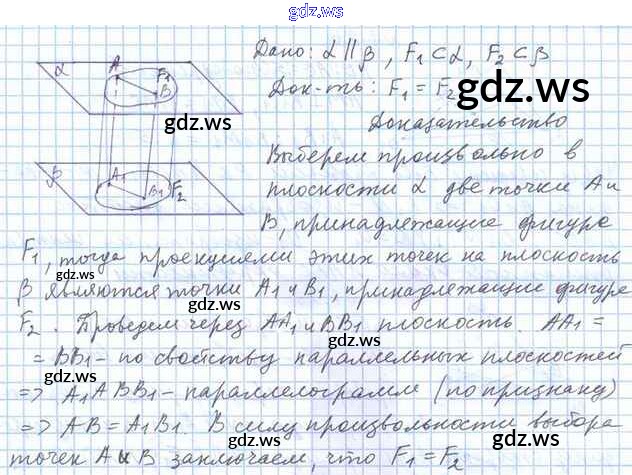 gdz.ws
Дано: α || β , F1 ⊂ α, F2 ⊂ β
Док-ть: F1 = F2
gdz.ws
Доказательство
Выберем произвольно в
плоскости α две точки A и
B, принадлежащие фигуре
F1, тогда проекциями этих точек на плоскость
β являются точки A1 и B1, принадлежащие фигуре
F2. Проведем через AA1 и BB1 плоскость. AA1 =
= BB1 - по свойству параллельных плоскостей
=> A1ABB1 - параллелограмм (по признаку)
=> AB = A1B1. В силу произвольности выбора
точек A и B заключаем, что F1 = F2
α A F1 B
gdz.ws
β A1 B1 F2
gdz.ws
gdz.ws
gdz.ws
gdz.ws
gdz.ws
gdz.ws
gdz.ws
gdz.ws